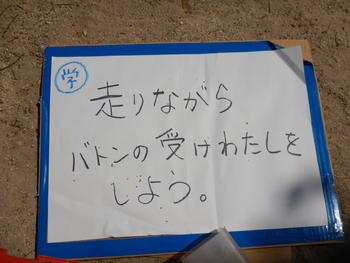 学
走りながら
バトンの受けわたしを
しよう。